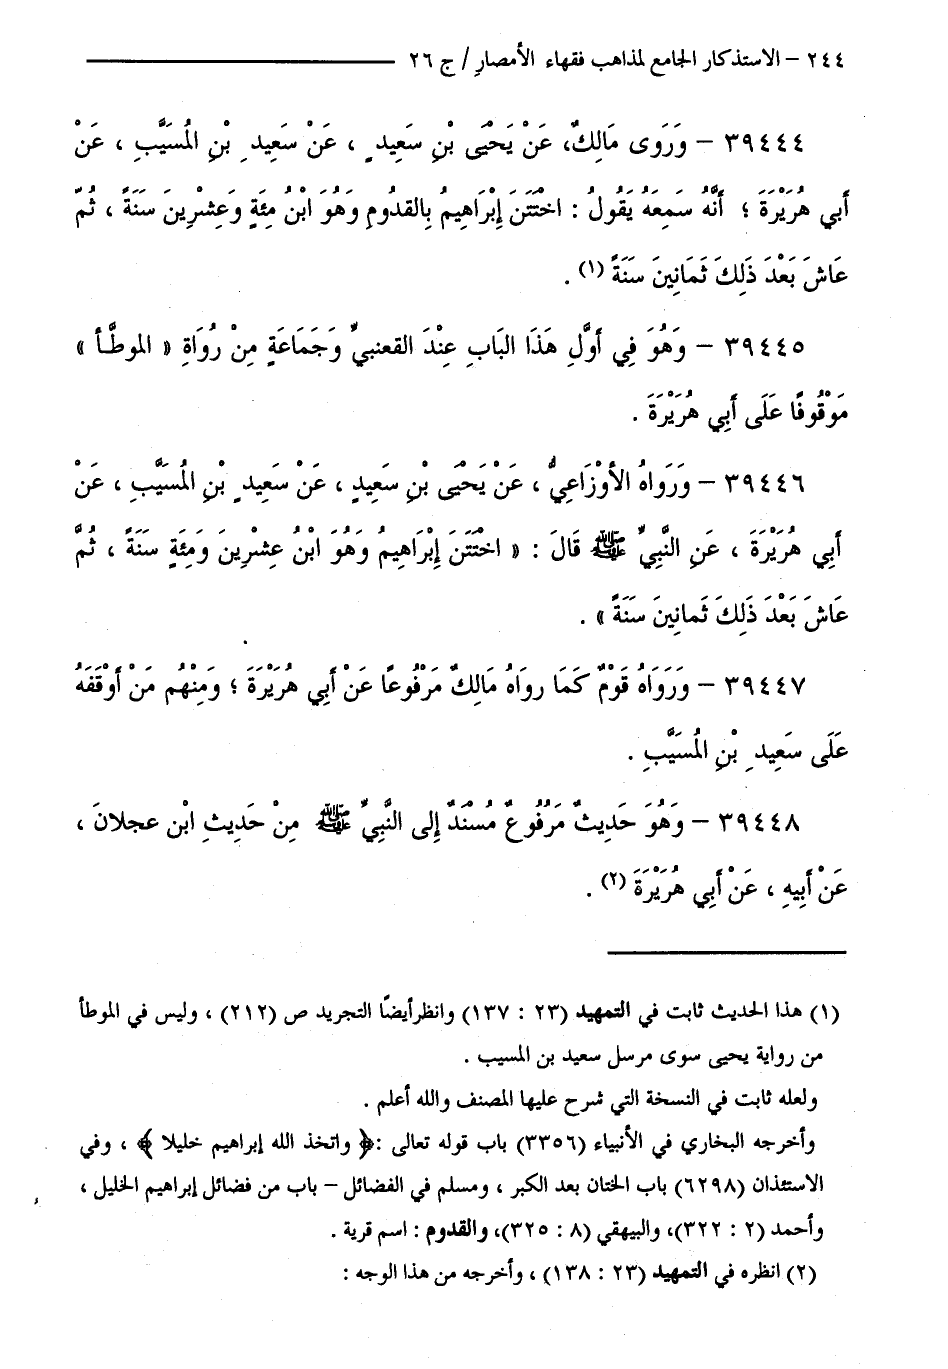 ٢٤٤ – الاستذكار الجامع لمذاهب فقهاء الأمصار / ج ٢٦
٣٩٤٤٤ – وَرَوَى مَالِكٌ، عَنْ يَحْيَى بْنِ سَعِيدٍ ، عَنْ سَعِيدِ بْنِ الْمُسَيَّبِ ، عَنْ
أَبي هُرَيْرَةَ ؛ أَنَّهُ سَمِعَهُ يَقُولُ : اخْتَتَنَ إِبْرَاهِيمُ بِالقدُومِ وَهُوَ ابْنُ مِئَةٍ وَعِشْرِينَ سَنَةً ، ثُمَّ
عَاشَ بَعْدَ ذَلِكَ ثَمَانِينَ سَنَةً (١) .
٣٩٤٤٥ – وَهُوَ فِي أَوَّلِ هَذَا البَابِ عِنْدَ القعنبيِّ وَجَمَاعَةٍ مِنْ رُوَاةِ « الموطَّأ »
مَوْقُوفًا عَلَى أَبِي هُرَيْرَةَ .
٣٩٤٤٦ – وَرَوَاهُ الأَوْزَاعِيُّ ، عَنْ يَحْيَى بْنِ سَعِيدٍ ، عَنْ سَعِيدِ بْنِ الْمُسَيَّبِ ، عَنْ
أَبِي هُرَيْرَةَ ، عَنِ النَّبِيِّ ﷺ قَالَ : « اخْتَتَنَ إِبْرَاهِيمُ وَهُوَ ابْنُ عِشْرِينَ وَمِئَةِ سَنَةً ، ثُمَّ
عَاشَ بَعْدَ ذَلِكَ ثَمانِينَ سَنَةً » .
٣٩٤٤٧ – وَرَوَاهُ قَوْمٌ كَمَا روَاهُ مَالِكٌ مَرْفُوعًا عَنْ أَبِي هُرَيْرَةَ ؛ وَمِنْهُم مَنْ أَوْقَفَهُ
عَلَى سَعِيدِ بْنِ الْمُسَيَّبِ .
٣٩٤٤٨ – وَهُوَ حَدِيثٌ مَرْفُوعٌ مُسْنَدٌ إِلى النَّبِيِّ ﷺ مِنْ حَدِيثِ ابْن عجلانَ ،
عَنْ أَبِيهِ ، عَنْ أَبِي هُرَيْرَةَ (٢) .
(١) هذا الحديث ثابت في التمهيد (٢٣ : ١٣٧) وانظر أيضًا التجريد ص (٢١٢) ، وليس في الموطأ
من رواية يحيى سوى مرسل سعيد بن المسيب .
ولعله ثابت في النسخة التي شرح عليها المصنف والله أعلم .
وأخرجه البخاري في الأنبياء (٣٣٥٦) باب قوله تعالى :﴿ واتخذ الله إبراهيم خليلا ﴾ ، وفي
الاستئذان (٦٢٩٨) باب الختان بعد الكبر ، ومسلم في الفضائل – باب من فضائل إبراهيم الخليل ،
وأحمد (٢ : ٣٢٢)، والبيهقي (٨ : ٣٢٥)، والقدوم : اسم قرية .
(٢) انظره في التمهيد (٢٣ : ١٣٨) ، وأخرجه من هذا الوجه :